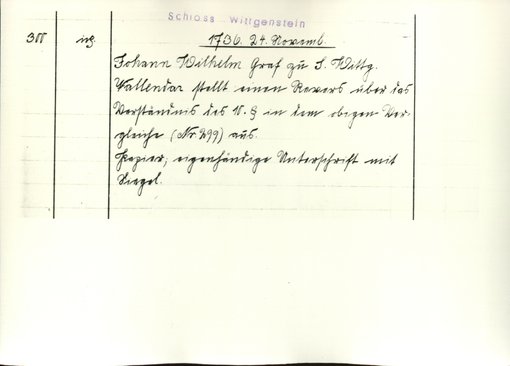 Schloss Wittgenstein
300 1736. 24. Novemb.
Johann Wilhelm Graf zu S. Wittg.
Vallendar stellt einen Revers über das
Verständnis des 10. § in dem obigen Ver-
gleiche (Nr 299) aus.
Papier, eigenhändige Unterschrift mit
Siegel.